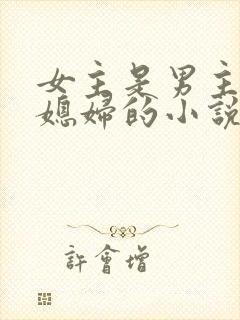 女主是男主
媳婦的小說
許會增